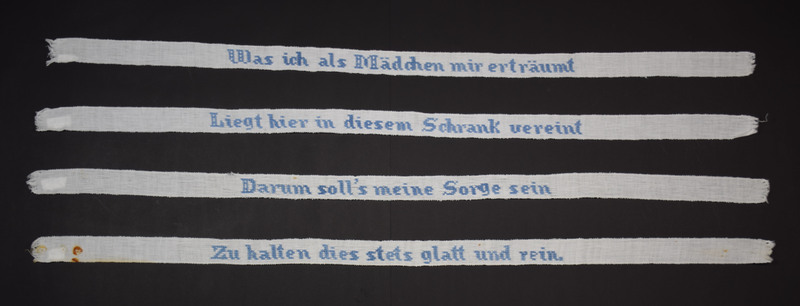 Was ich als Mädchen mir erträumt
Liegt hier in diesem Schrank vereint
Darum soll's meine Sorge sein
Zu halten dies stets glatt und rein.